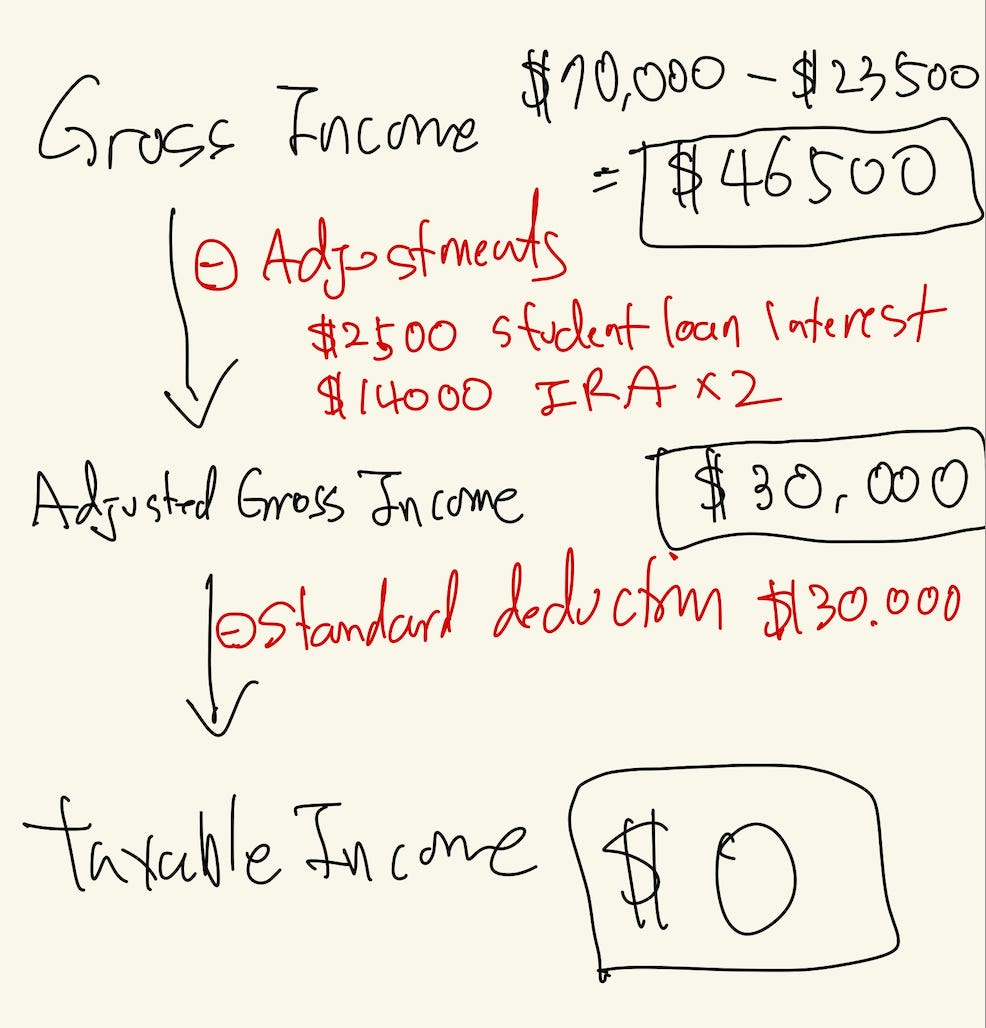 Gross Income $70,000 - $23500
= $46500
⊖ Adjustments
$2500 student loan interest
$14000 IRA x 2
Adjusted Gross Income $30,000
⊖ Standard deduction $30.000
Taxable Income $0